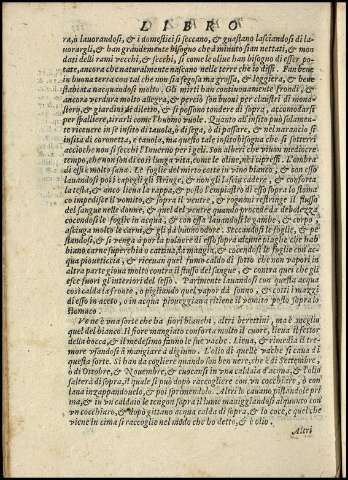 LIBRO
ra, ò lauorandosi, & i domestici si seccano, & guastano lasciandosi di la-
uorargli, & han grandemente bisogno che à minuto sian nettati, & mon
dati delli rami vecchi, & secchi, si come le oliue han bisogno di esser po-
tate, ancora che naturalmente nascano nelle terre che io dissi. Fan bene
in buona terra con tal che non sia fegosa ma grossa, & leggiera, & bene
stabia ta nacquandosi molto. Gli mirti han continuamente frondi, &
ancora verdura molto allegra, & perciò son buoni per claustri di monas-
sterio, & giardini di diletto, & si possono tondere di sopra, accomodarsi
per spalliere, tirarli come l'huomo vuole. Quanto all'insito può solamen-
te riceuere in se insito di tauola, ò di sega, ò di passare, & nel narancio si
insita di coronetta, & tauola, ma questo tale insito bisogna che si sotterri
acciò che non si secchi l'Inuerno per i geli. son alberi che viuon mediocre
tempo, che non son di così lunga vita, come le oliue, ne i cipressi. L'ombra
di essi è molto sana. Le foglie del mirto cotte in vino bianco, & con esso
lauandosi poi i capegli gli stringe, & non gli lascia cadere, & conforta
la testa, & anco lieua la rappa, & posto l'empiastro di esso sopra lo stoma
co impedisce il vomito, & sopra il ventre, & rognoni restringe il flusso
del sangue nelle donne, & quel del ventre quando procede da debolezza
cocendosi le foglie in acqua, & con essa lauandosi le gambe, & corpo,
asciuga molto le carni, & gli dà buono odore. Seccandosi le foglie, & pe-
standosi, & si venga à por la poluere di esse sopra alcune piaghe che hab
biano carne superchia ò cattina, la mangia, & cocendosi le foglie con ac-
qua piouetticcia, & riceuan quel fumo caldo di sotto che non vapori in
altra parte gioua molto contra il flusso del sangue, & contra quei che gli
esce fuori gli interiori del sesso. Parimente lauandosi con questa acqua
così calda la fronte, ò pigliando quel vapor dà sonno, & cotti i mazzi
di esso in aceto, ò in acqua piouegiana ritiene il vomito posto sopra lo
stomaco
Ve ne è una sorte che ha fiori bianchi, altri berettini, ma è meglio
quel del bianco. Il fiore mangiato conforta molto il cuore, lieua il fettor
della bocca, & il medesimo fanno le sue vache. Lieua, & rimedia il tre-
more vsandosi à mangiare à digiuno. L'olio di quelle vache si caua di
questa sorte. Si han da cogliere quando son ben nere, che è di Settembre,
ò di Ottobre, & Nouembre, & cuocansi in vna caldaia d'acqua, & l'olio
salterà di sopra, il quale si può dopò raccogliere con vn cocchiaro, ò con
lana ingappandouelo, & poi spremendolo. Altri lo cauano pistandole pri
ma, & in vn caldaio le tengon sopra il lume maneggiandosi alquanto con
vn cocchiaro, & dopò gittano acqua calda di sopra, & lo coce, & quel che
viene in cima si raccoglie nel modo che ho detto, & è olio.
Altri